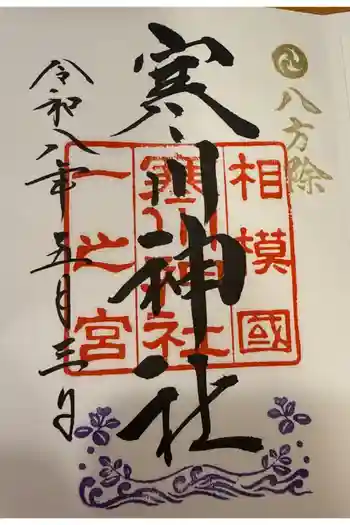 八方除
寒川神社
相模國
寒川神社
一之宮
令和八年五月三日